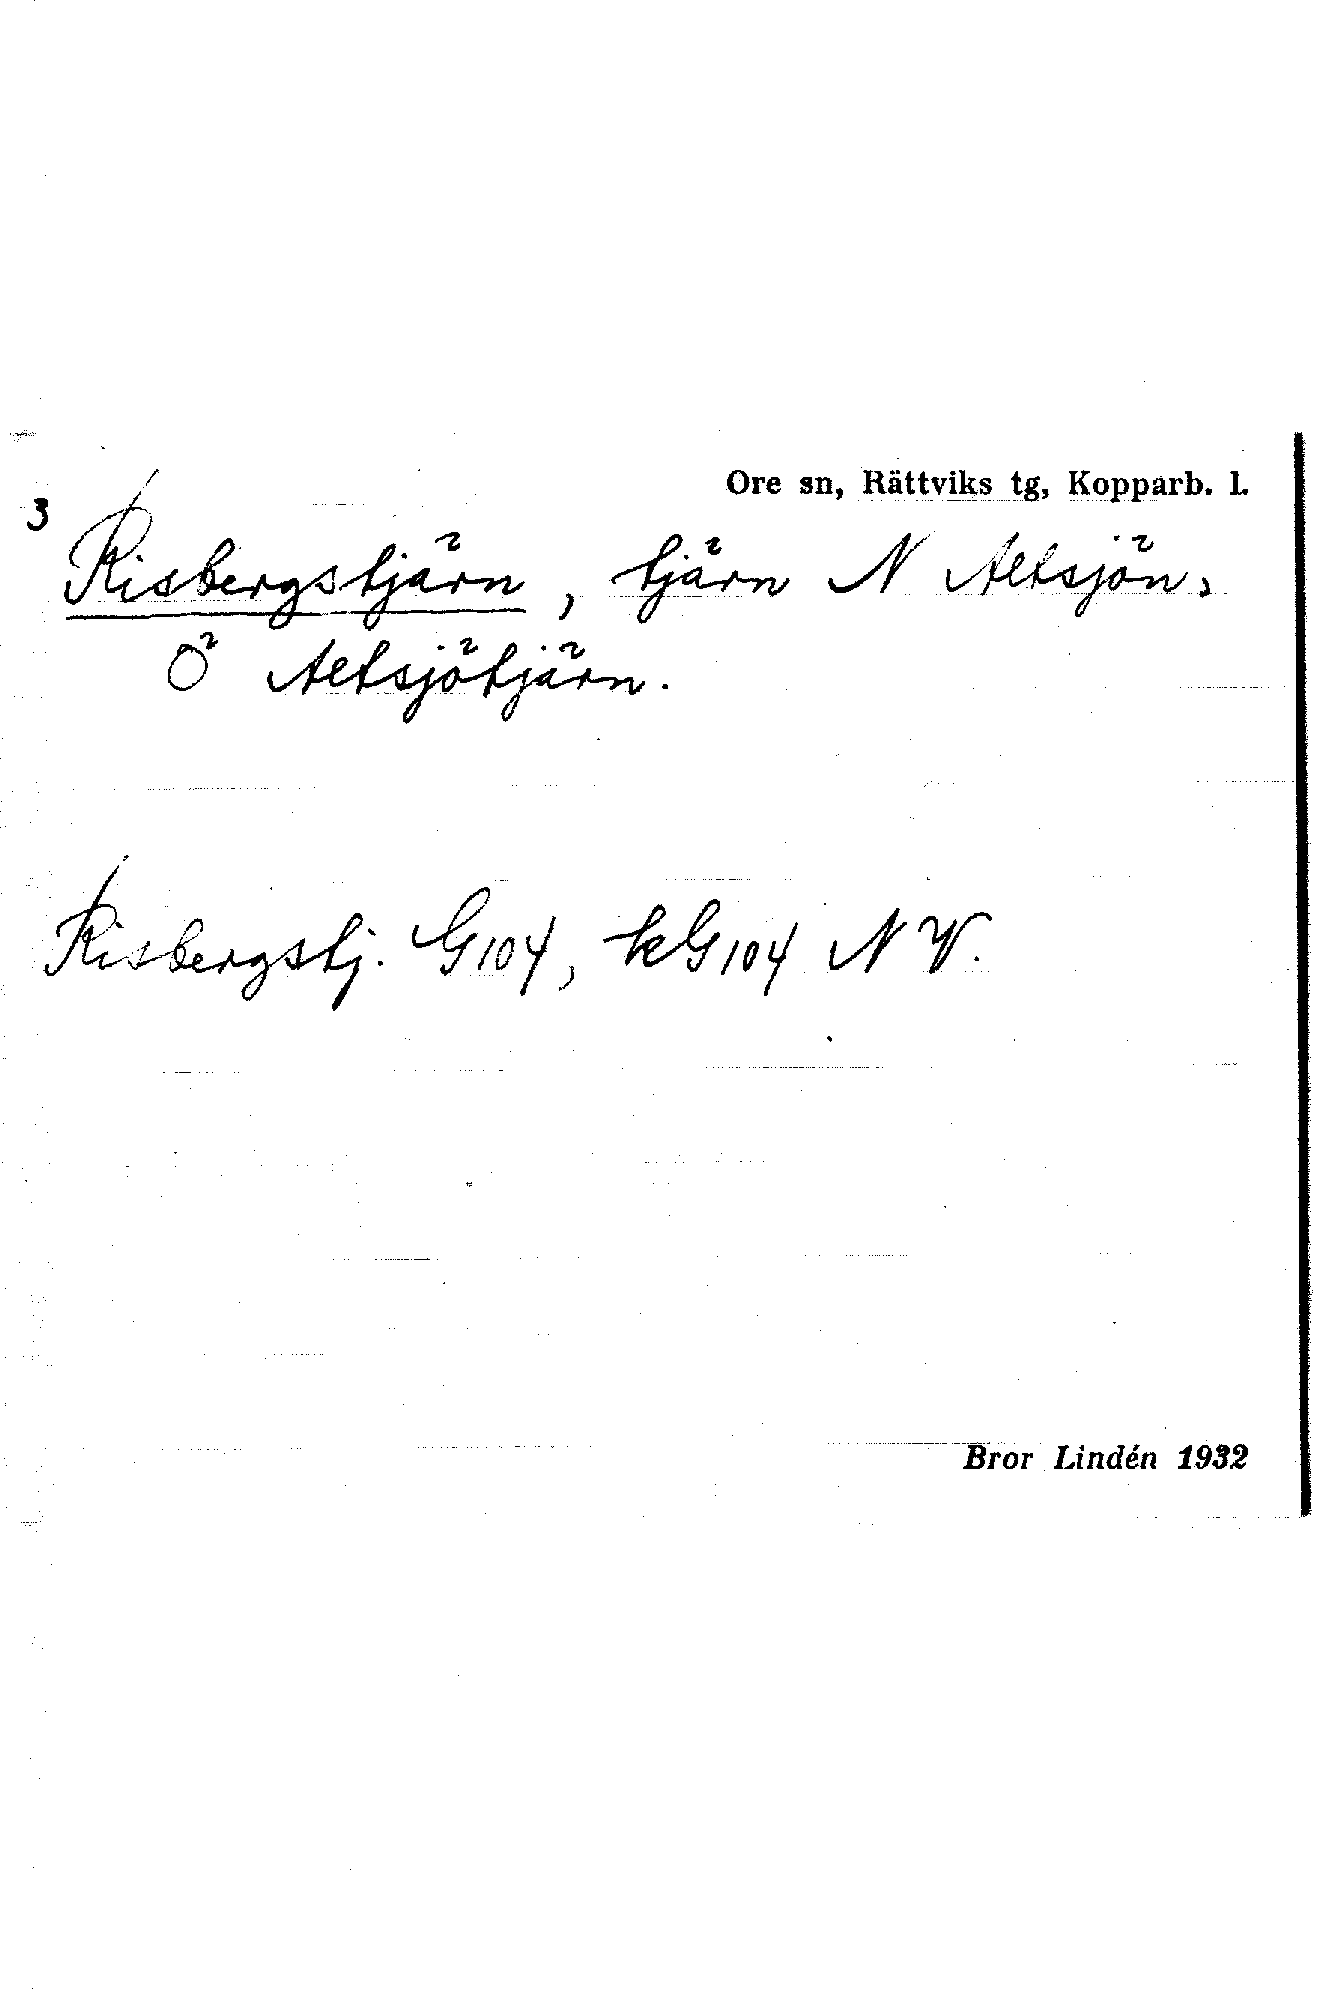 Ore sn, Rättviks tg, Kopparb. l.
3
Risbergstjärn, tjärn N Altsjön,
Ö Altsjötjärn.
Risbergstj. G104, kG104 NV.
Bror Lindén 1932